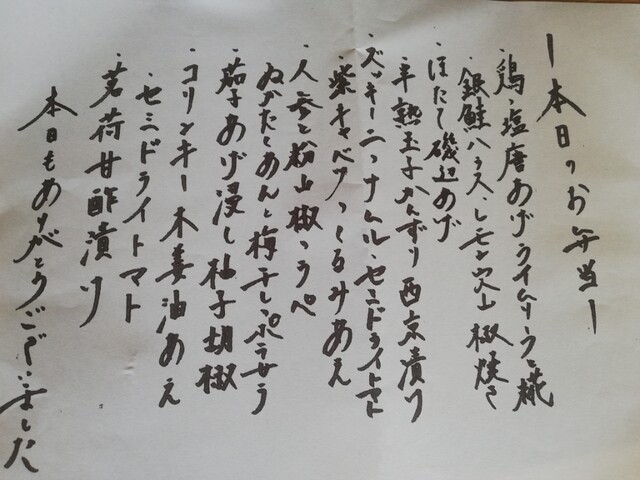 ー本日のお弁当ー
・鶏の塩唐あげライム
・銀鮭ハラスレモン山椒焼き
・ほたて磯辺あげ
・半熟玉子かんずり西京漬け
・ズッキーニのナムル・セミドライトマト
・紫キャベツのくるみあえ
・人参と粉山椒のらぺ
梅干し
茄子あげ浸し柚子胡椒
・コリンキー木姜油あえ
・セミドライトマト
・茗荷甘酢漬け
本日もありがとうございました